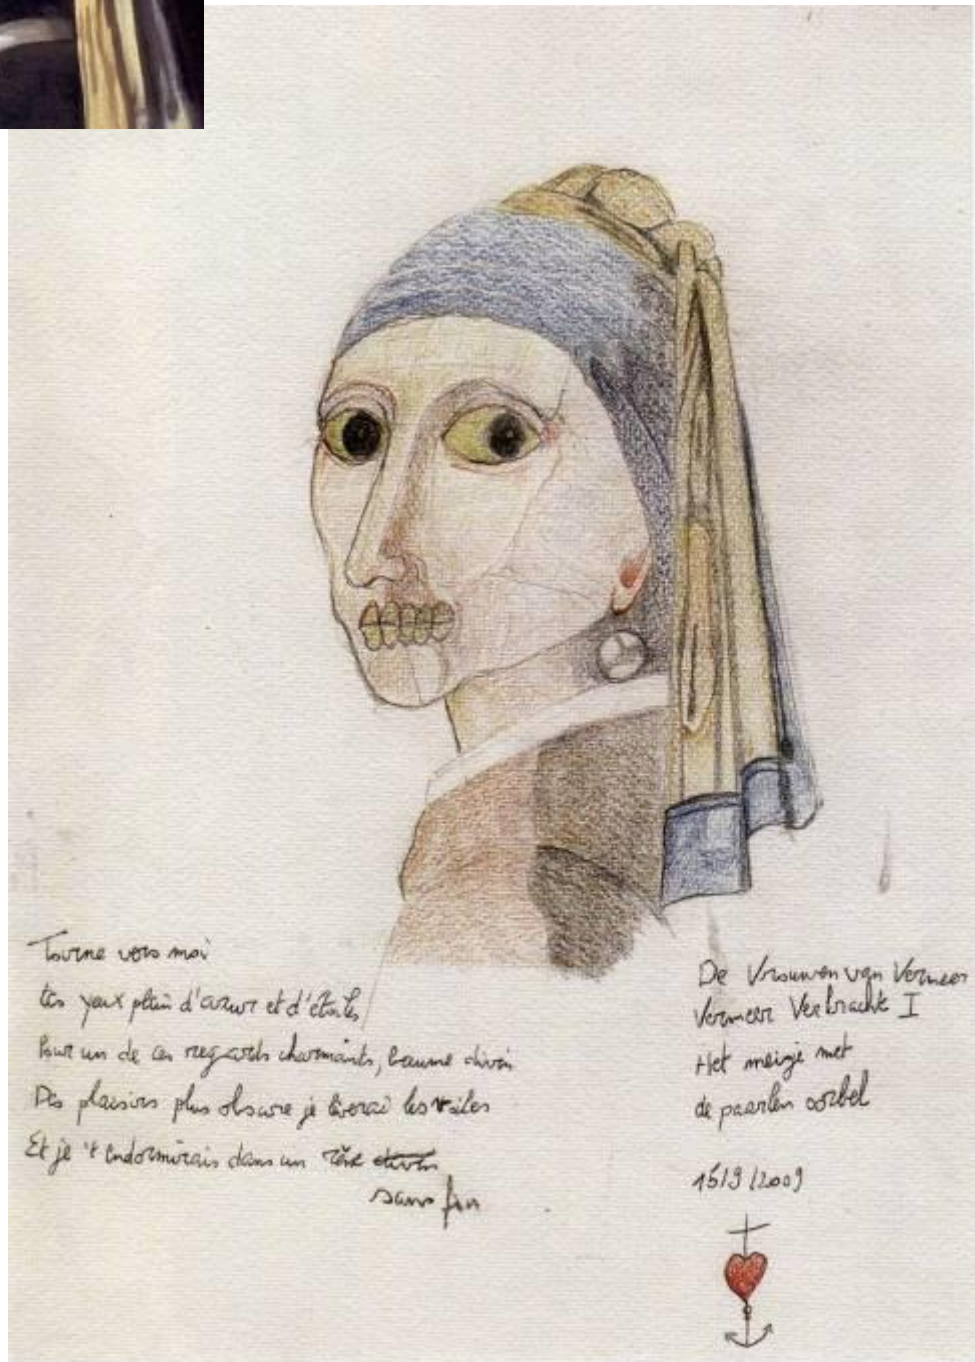 Tourne vers moi
tes yeux plein d'azur et d'étoiles
Pour un de ces regards charmants, beaume divin
Des plaisirs plus obscure je lèverai les voiles
Et je t'endormirais dans un rêve divin
sans fin
De Vrouwen van Vermeer
Vermeer Verkracht I
Het meisje met
de paarlen oorbel
15/9/2009